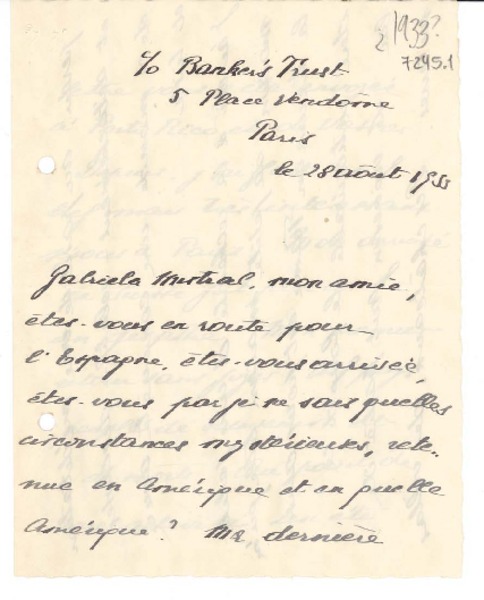 2 1933?
7245.1
c/o Banker's Trust
5 Place Vendome
Paris
le 28 août 1933
Gabriela Mistral, mon amie,
êtes-vous en route pour
l'Espagne, êtes-vous arrivée,
êtes-vous par je ne sais quelles
circonstances mystérieuses, rete-
nue en Amérique et en quelle
Amérique? Ma dernière